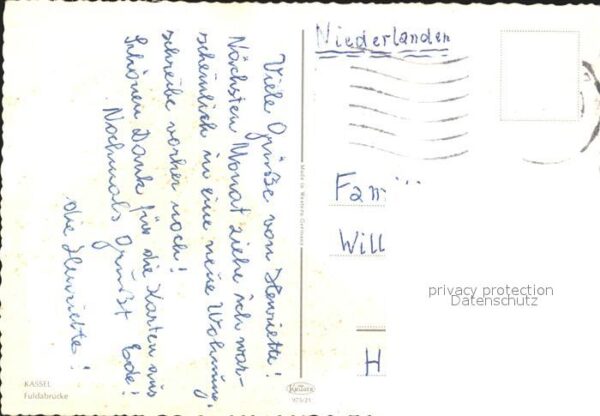 Niederlanden
Viele Grüße von Henriette!
Nächsten Monat ziehe ich war-
scheinlich in eine neue Wohnung,
schreibe vorher noch!
Schönen Dank für die Karten aus
Ede!
Nochmals Grüßt
die Henriette!
Made in Western Germany
Fam
Will
H
privacy protection
Datenschutz
KASSEL
Fuldabrücke
975/21